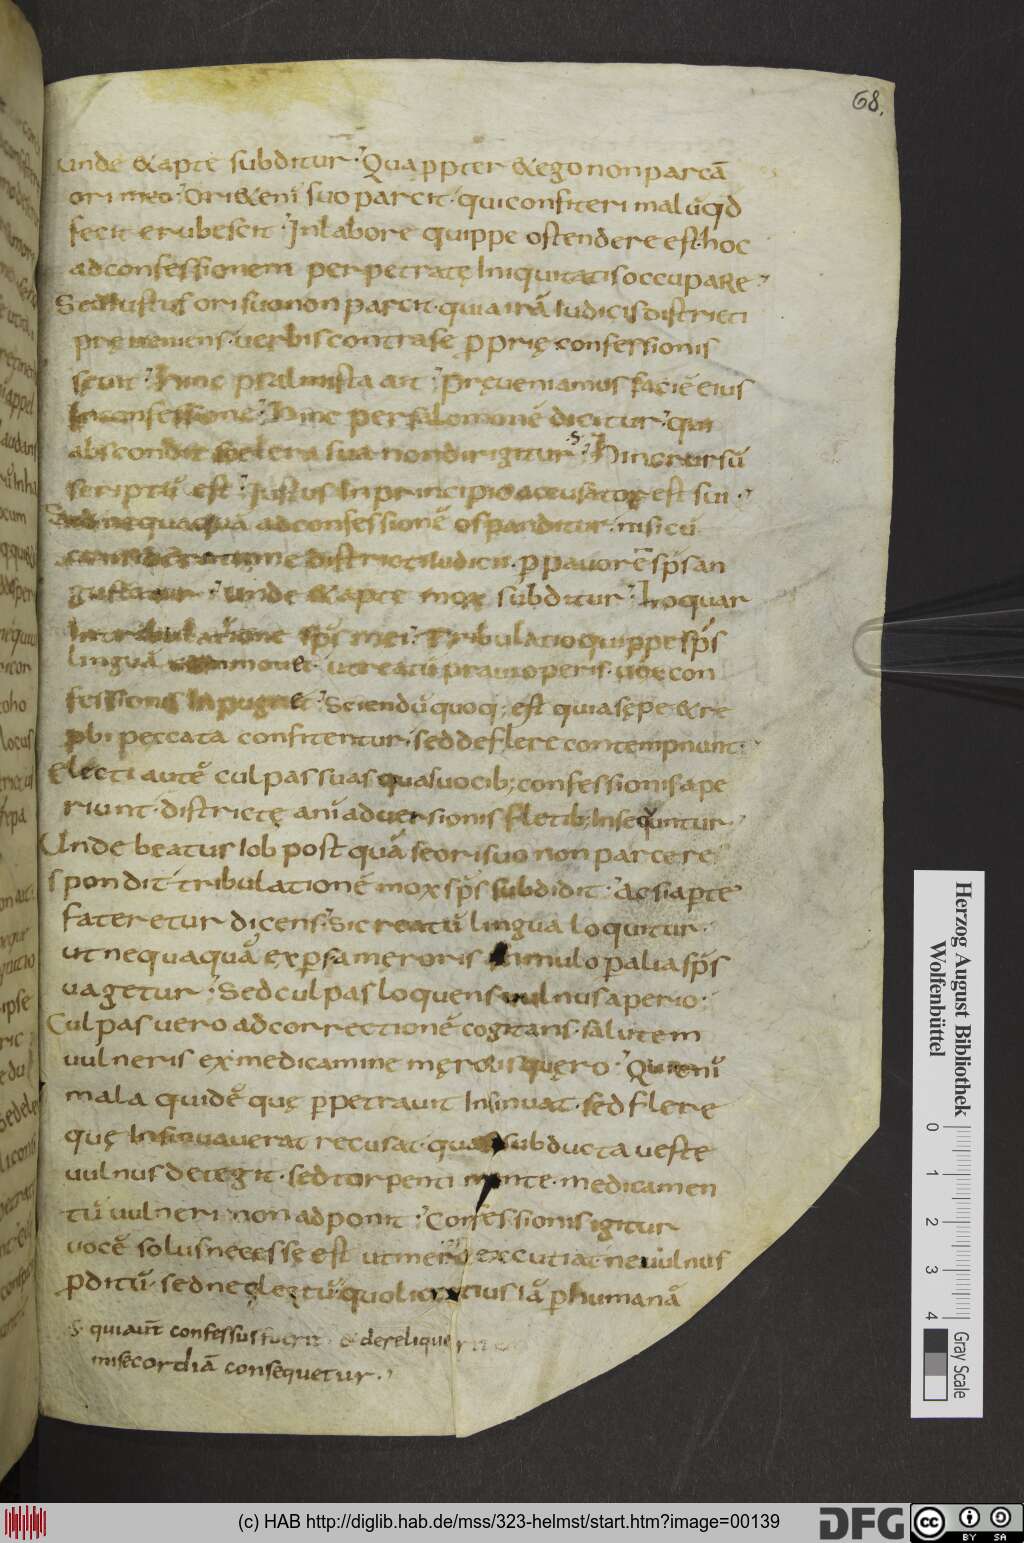 68.
unde & apte subditur· Qua ppter & ego non parcā
ori meo· Ori & eni suo parcit· qui confiteri malū qđ
fecit erubescit· Inlabore quippe ostendere est· hoc
ad confessionem perpetratę Iniquitatis occupaRe·
Sed Iustus ori suo non parcit· quia irā Iudicis districti
pręueniens· uerbis contra se pprię confessionis
sęuit· hinc psalmista ait· Pręueniamus faciē eius
In confessione· hinc per salomonē dicitur· qui
abscondit scelera sua non dirigitur· s· hinc rursū
scriptū est· Iustus In principio accusator est sui·
Sed nequaquā ad confessionē os panditur· nisi cū
consideratione districti Iudicii· p pauorē sps an
gustatur· unde & apte mox subditur· Loquar
In tribulatione sps mei· Tribulatio quippe sps
linguā commouet· ut reatū praui operis· uox con
fessionis Inpugnet· Sciendū quoq; est quia sępe & re
pbi peccata confitentur· sed deflere contempnunt·
Electi autē culpas suas quas uocib; confessionis ape
riunt· districtę aniaduersionis fletib; Insequntur·
Unde beatus Iob post quā se ori suo non parcere
spondit tribulationē mox sps subdidit· Ac si apte
fateretur dicens· Sic reatū lingua loquitur·
ut nequaquā expsa męroris stimulo p alia sps
uagetur· Sed culpas loquens uulnus aperio·
Culpas uero ad correctionē cogitans· salutem
uulneris ex medicamine męroris quęro· Qui eni
mala quidē quę ppetrauit Insinuat· sed flere
quę Insinuauerat recusat· quasi subducta ueste
uulnus detegit· sed torpenti mente· medicamen
tū uulneri non adponit· Confessionis igitur
uocē solus necesse est ut meror excutiat ne uulnus
pditū· sed neglectū quo licentius iā p humanā
s· qui aut confessus fuerit & derelique
misecordiā consequetur·
Herzog August Bibliothek
Wolfenbüttel
0 1 2 3 4
Gray Scale
(c) HAB http://diglib.hab.de/mss/323-helmst/start.htm?image=00139
DFG
cc BY SA